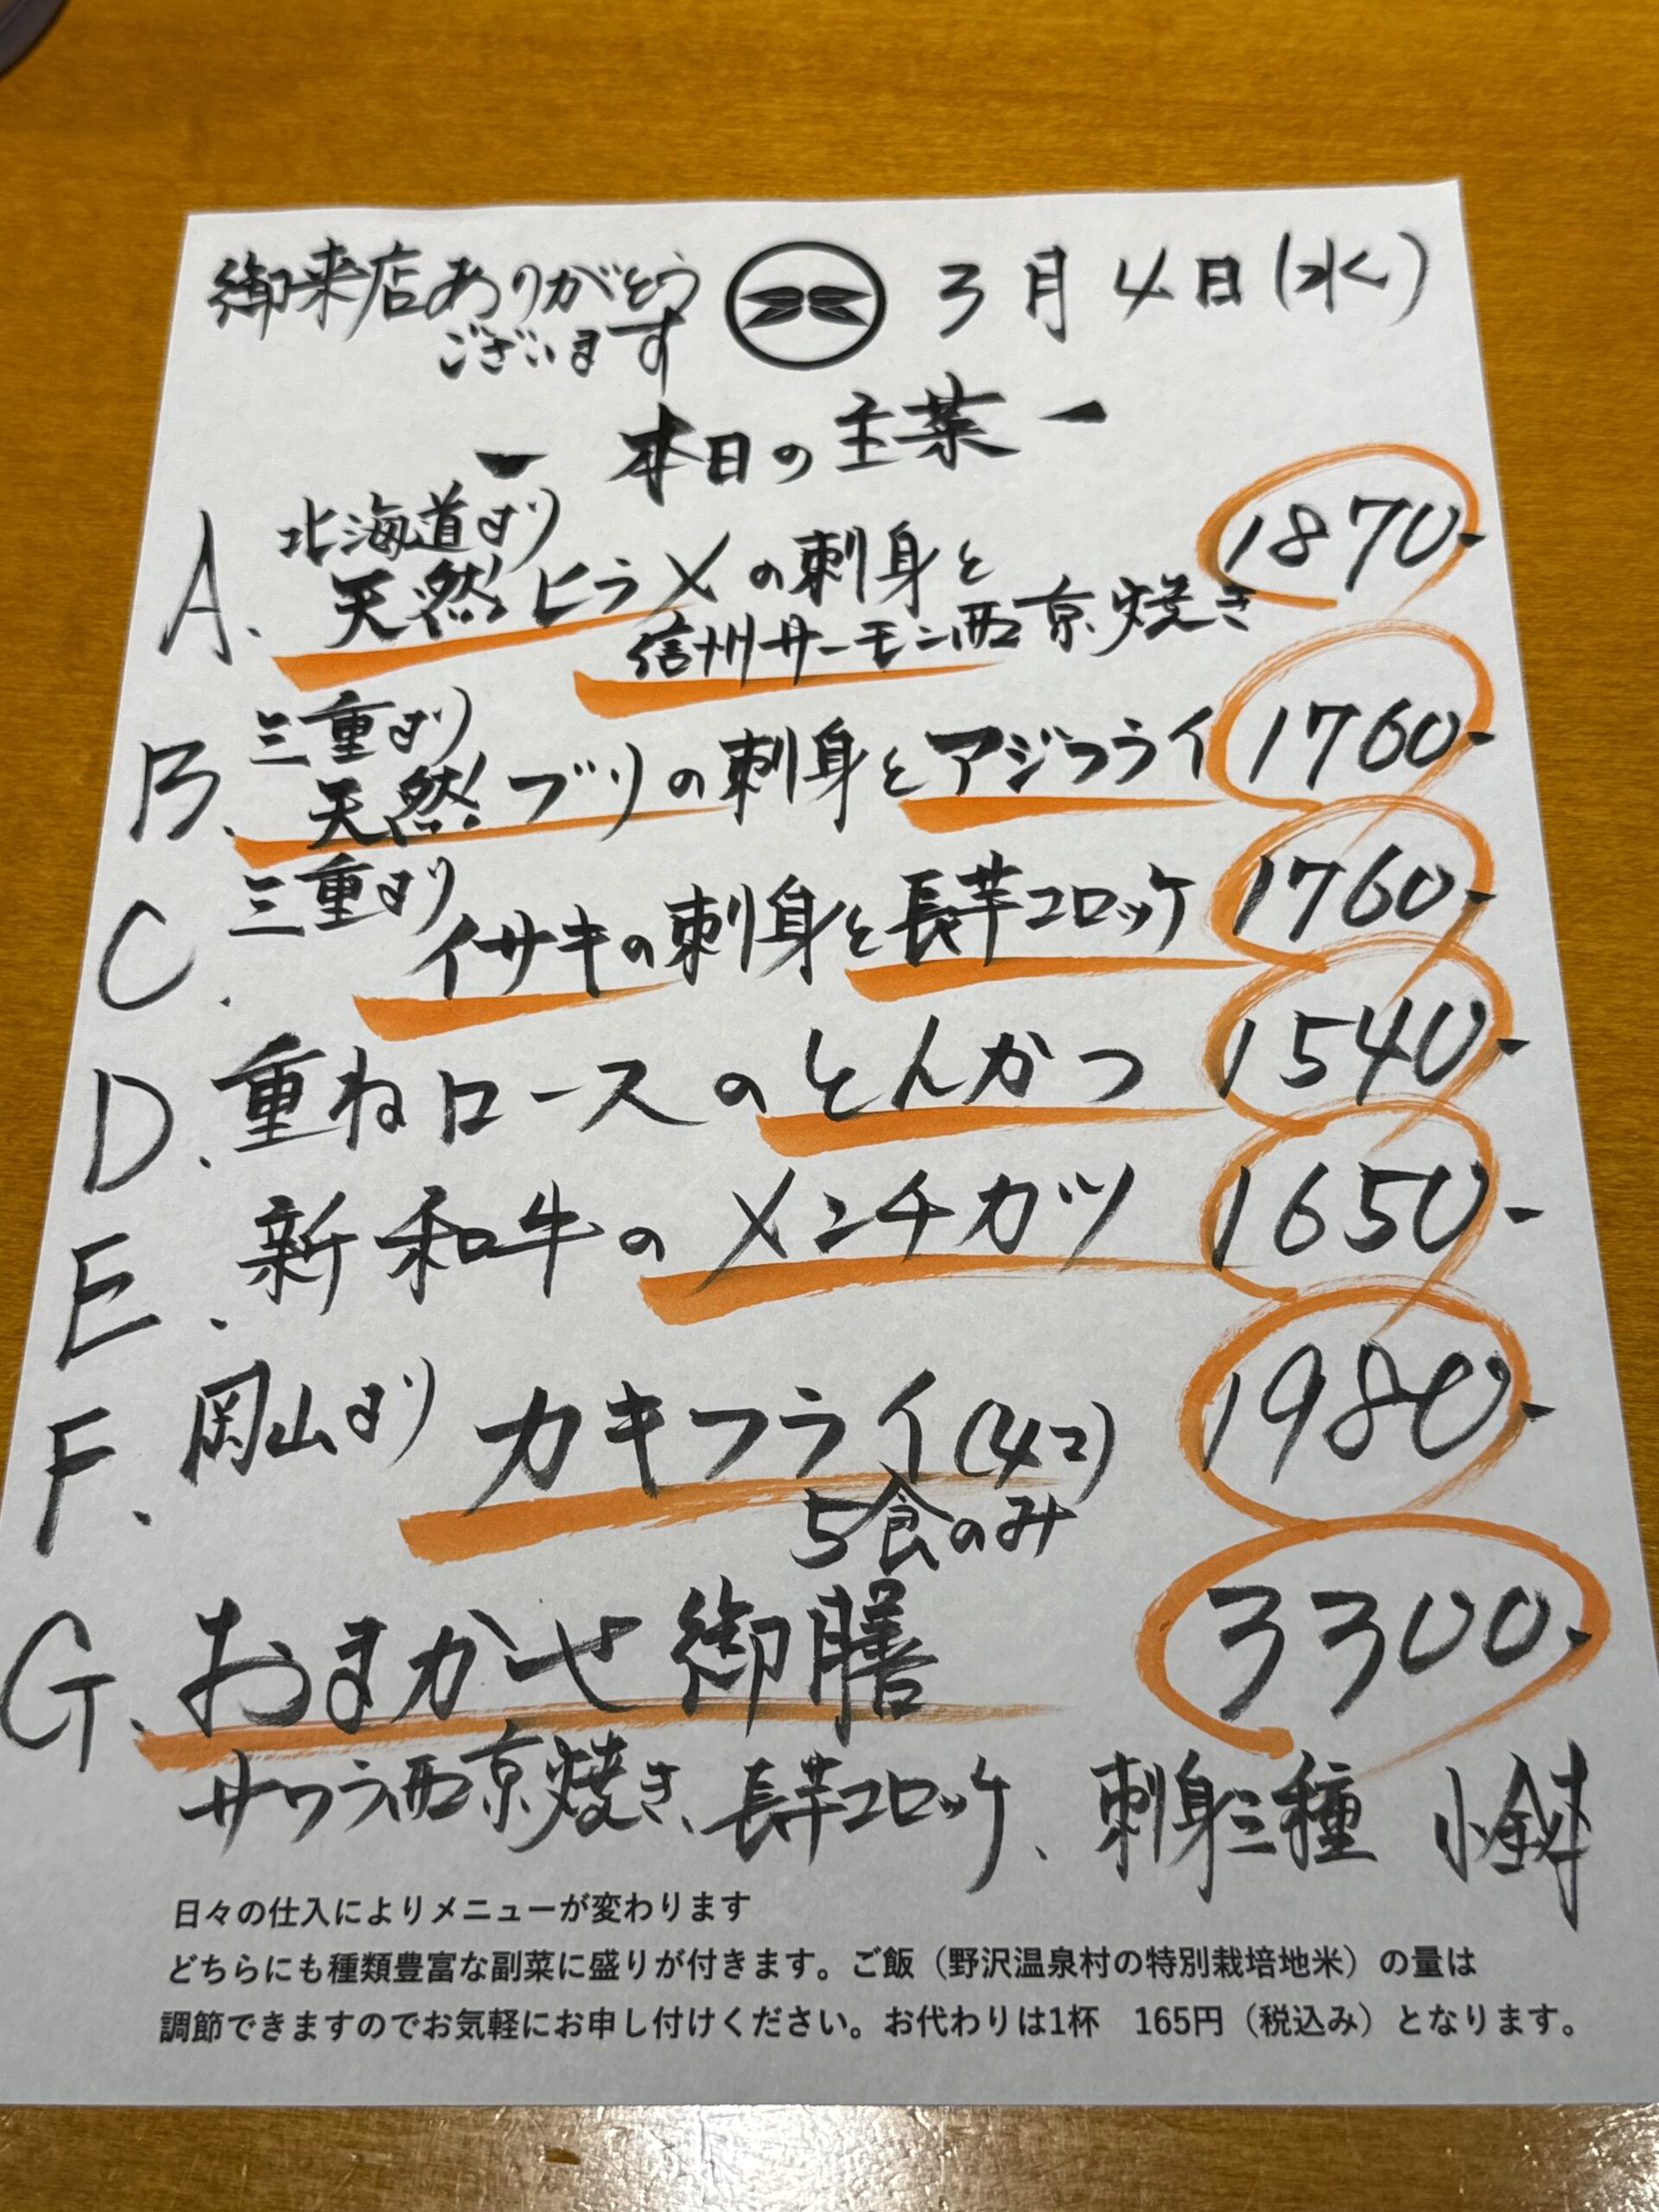 御来店ありがとう
ございます
3月4日(水)
ー 本日の主菜 ー
A. 北海道より
天然ヒラメの刺身と
信州サーモン西京焼き 1870-
B. 三重より
天然ブリの刺身とアジフライ 1760-
C. 三重より
イサキの刺身と長芋コロッケ 1760-
D. 重ねロースのとんかつ 1540-
E. 新和牛のメンチカツ 1650-
F. 岡山より カキフライ(4コ) 1980-
5食のみ
G. おまかせ御膳 3300-
サワラ西京焼き、長芋コロッケ、刺身三種 小鉢
日々の仕入によりメニューが変わります
どちらにも種類豊富な副菜に盛りが付きます。ご飯（野沢温泉村の特別栽培地米）の量は
調節できますのでお気軽にお申し付けください。お代わりは1杯 165円（税込み）となります。